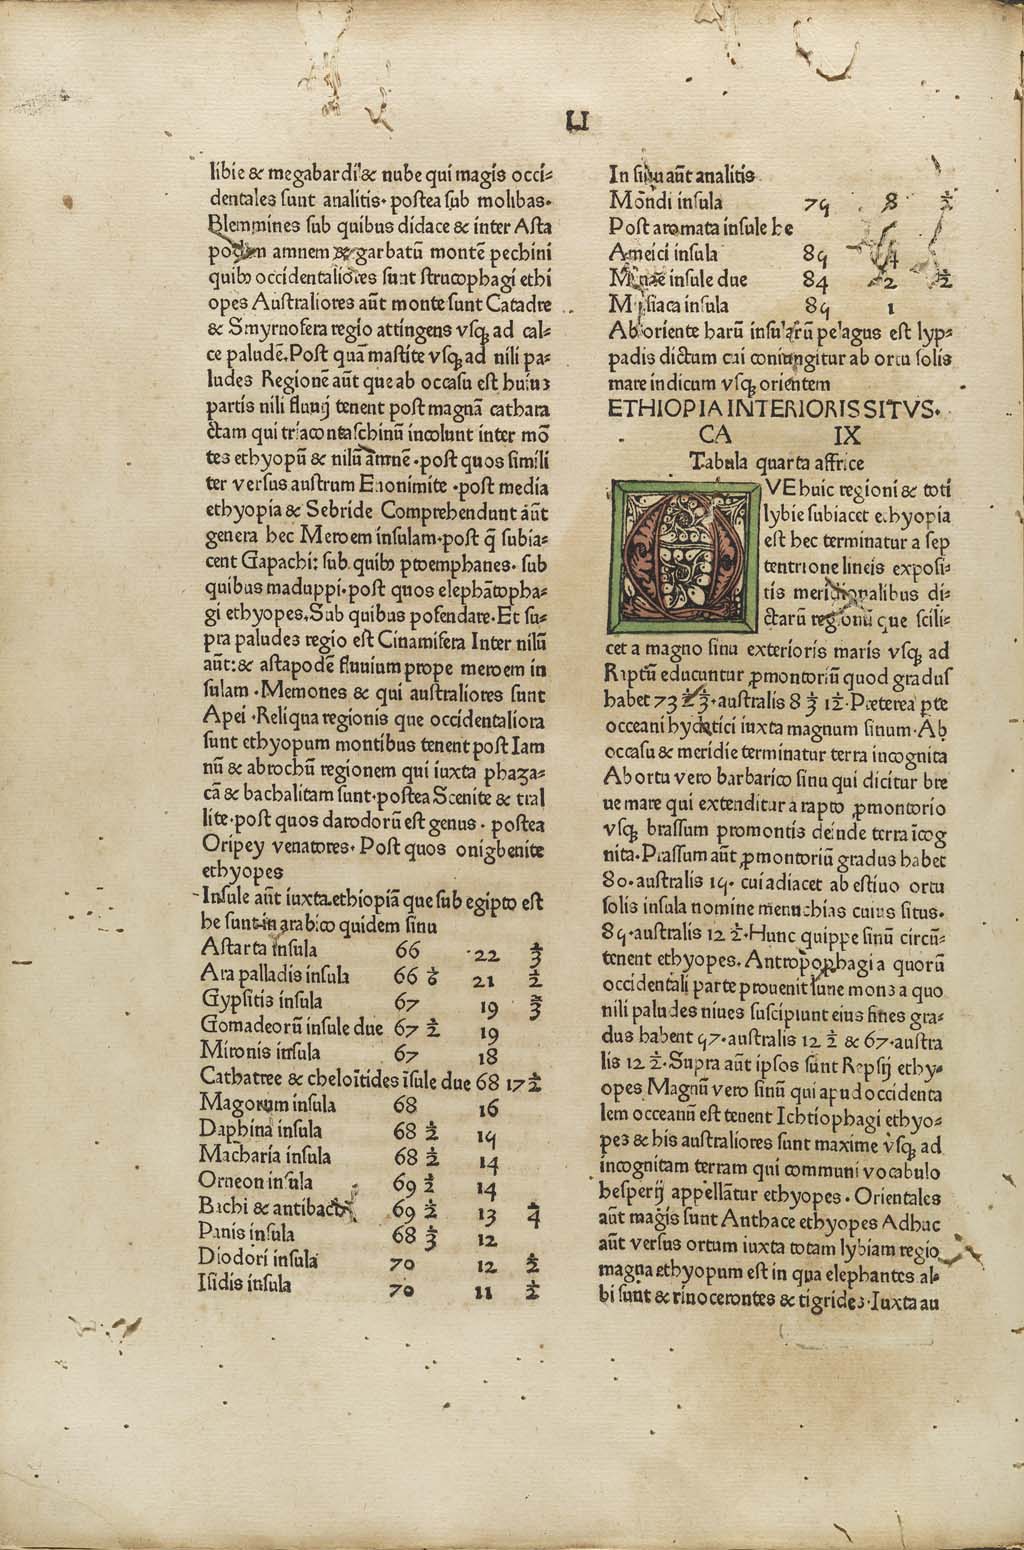 LI
libie & megabardi & nube qui magis occi=
dentales sunt analitis. postea sub molibas.
Blemmines sub quibus didace & inter Asta
amnem & garbatū montē pechini
quibꝯ occidentaliores sunt strucophagi ethi
opes Australiores aūt monte sunt Catadre
& Smyrnofera regio attingens vsqꝫ ad cal=
ce paludē. Post quā mastite vsqꝫ ad nili pa=
ludes Regionē aūt que ab occasu est huiuꝫ
partis nili fluuij tenent post magnā cathara
ctam qui triacontaschinū incolunt inter mō
tes ethyopū & nilū amnē. post quos simili
ter versus austrum Euonimite. post media
ethyopia & Sebride Comprehendunt aūt
genera hec Meroem insulam. post q̄ subia=
cent Gapachi: sub quibꝯ ptoemphanes. sub
quibus maduppi. post quos elephātopha=
gi ethyopes. Sub quibus pesendare. Et su=
pra paludes regio est Cinamifera Inter nilū
aūt: & astapodē fluuium prope meroem in
sulam. Memones & qui australiores sunt
Apei. Reliqua regionis que occidentaliora
sunt ethyopum montibus tenent post Iam
nū & abrochū regionem qui iuxta phaza=
cā & bachalitam sunt. postea Scenite & tral
lite. post quos darodorū est genus. postea
Oripey venatores. Post quos onigbenite
ethyopes
Insule aūt iuxta ethiopiā que sub egipto est
he sunt in arabico quidem sinu
Astarta insula 66 22 ⅔
Ara palladis insula 66 ⅙ 21 ½
Gypsitis insula 67 19 ⅔
Gomadeorū insule due 67 ½ 19
Mironis insula 67 18
Cathatree & cheloītides īsule due 68 17 ½
Magorum insula 68 16
Daphina insula 68 ½ 15
Macharia insula 68 ½ 14
Orneon insula 69 ½ 14
Bachi & antibachi 69 ½ 13 ¼
Panis insula 68 ⅔ 12
Diodori insula 70 12 ½
Isidis insula 70 11 ½
In sinu aūt analitis
Mōndi insula 75 8 ½
Post aromata insule he
Ameici insula 85 4
insule due 84 2 ½
insula 85 1
Ab oriente harū insularū pelagus est lyp=
padis dictum cui coniungitur ab ortu solis
mare indicum vsqꝫ orientem
ETHIOPIA INTERIORIS SITVS.
CA IX
Tabula quarta affrice
QVE huic regioni & toti
lybie subiacet ethyopia
est hec terminatur a sep
tentrione lineis exposi=
tis meridionalibus di=
ctarū regionū que scili=
cet a magno sinu exterioris maris vsqꝫ ad
Raptū educuntur ꝓmontoriū quod gradus
habet 73 ½ ⅓. australis 8 ⅓ 1½. Preterea pte
occeani hyditici iuxta magnum sinum. Ab
occasu & meridie terminatur terra incognita
Ab ortu vero barbarico sinu qui dicitur bre
ue mare qui extenditur a rapto ꝓmontorio
vsqꝫ brassum promontis deinde terra īcog
nita. Prassum aūt ꝓmontoriū gradus habet
80. australis 15. cui adiacet ab estiuo ortu
solis insula nomine menuchias cuius situs.
85. australis 12 ½. Hunc quippe sinū circū=
tenent ethyopes. Antropophagi a quorū
occidentali parte prouenit lune mons a quo
nili paludes niues suscipiunt eius fines gra=
dus habent 57. australis 12 ½ & 67. austra
lis 12 ½. Supra aūt ipsos sunt Rapsij ethy=
opes Magnū vero sinū qui apud occidenta
lem occeanū est tenent Ichtiophagi ethyo=
peꝫ & his australiores sunt maxime vsqꝫ ad
incognitam terram qui communi vocabulo
hesperij appellātur ethyopes. Orientales
aūt magis sunt Anthace ethyopes Adhuc
aūt versus ortum iuxta totam lybiam regio
magna ethyopum est in qua elephantes al=
bi sunt & rinocerontes & tigrideꝫ. Iuxta au